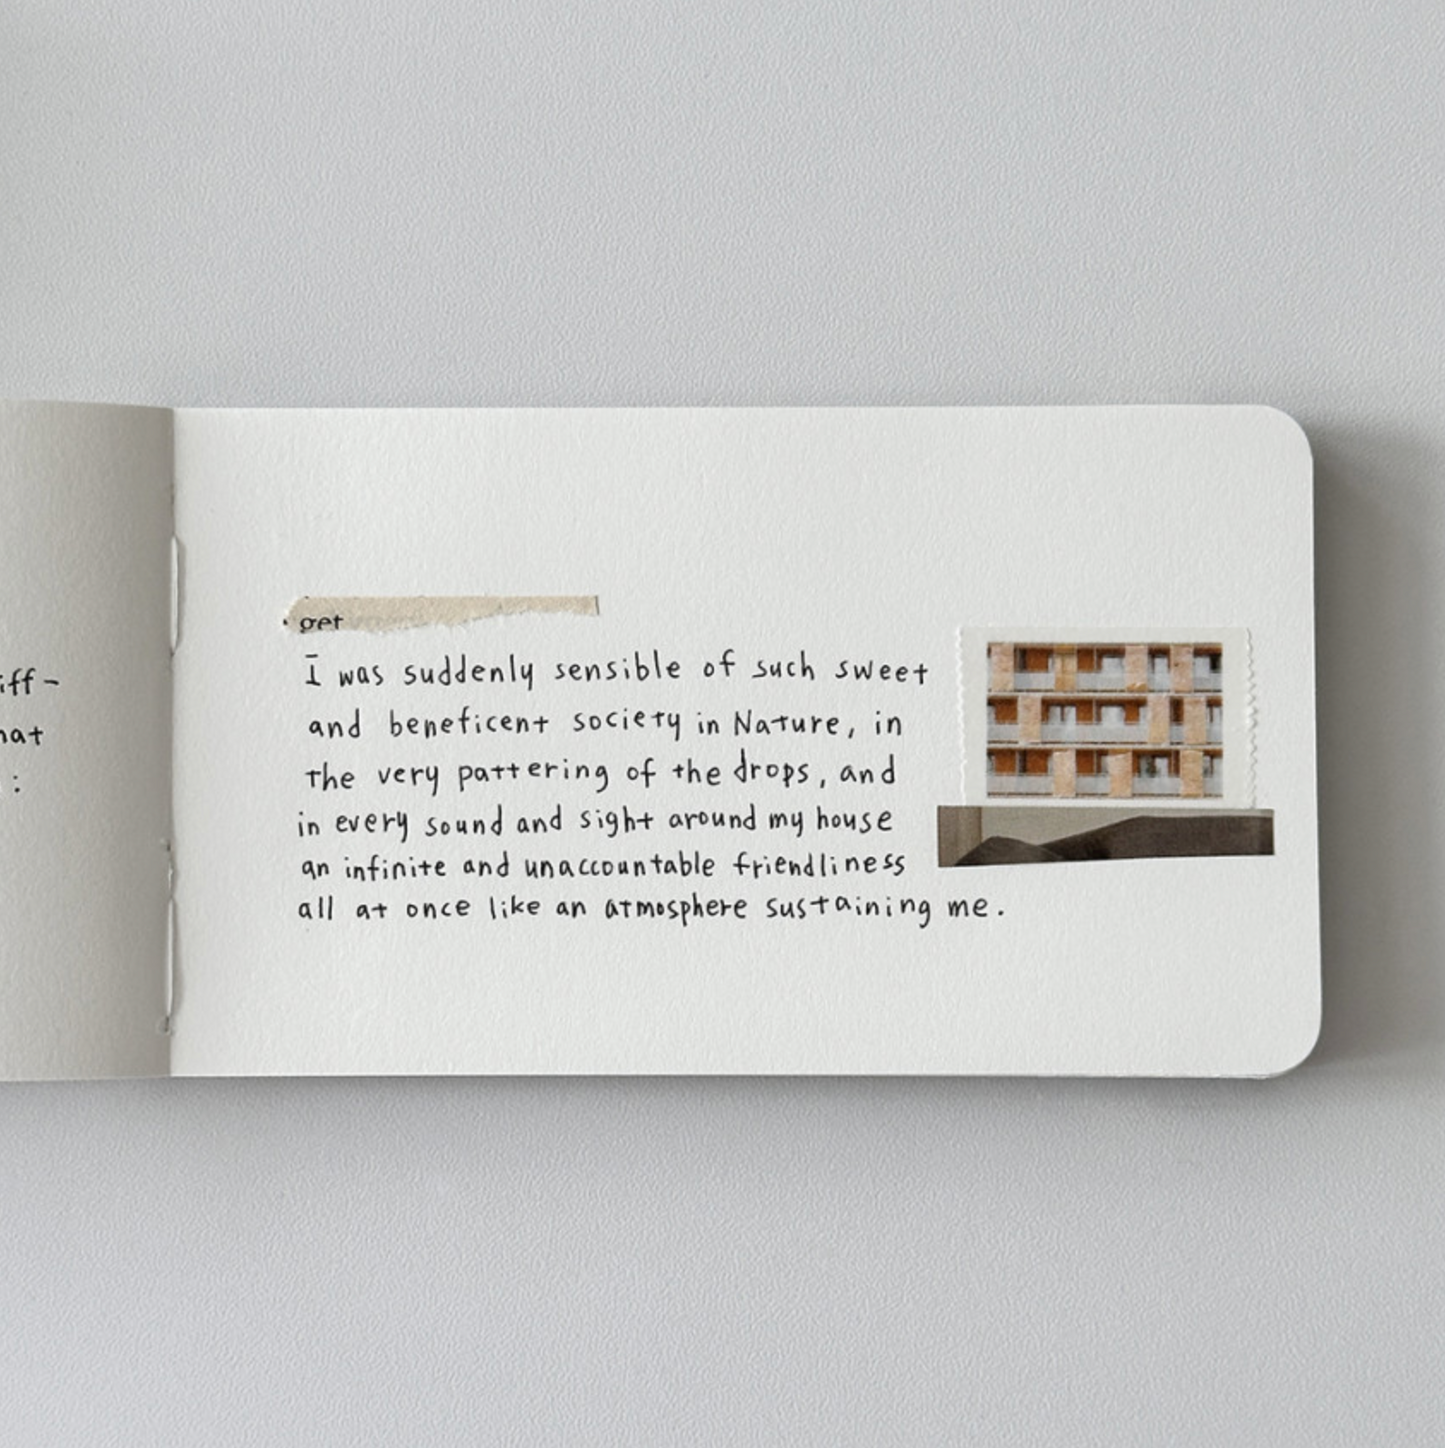 iff-
hat
:
get
I was suddenly sensible of such sweet
and beneficent society in Nature, in
the very pattering of the drops, and
in every sound and sight around my house
an infinite and unaccountable friendliness
all at once like an atmosphere sustaining me.